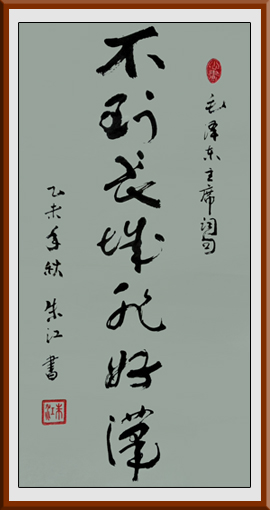 毛泽东主席词句
不到长城非好漢
乙未年秋 朱江書
朱江